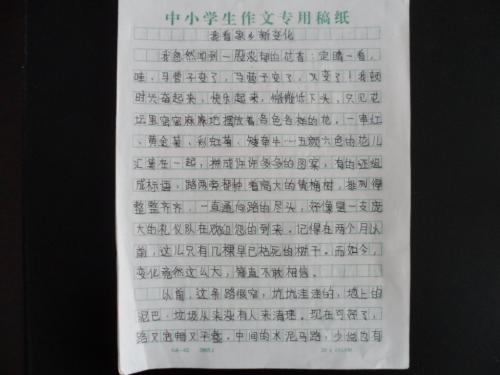 中小学生作文专用稿纸
我看家乡新变化
我忽然闻到一股浓郁的花香；定睛一看，
哇，马营子变了，马营子变了，又变了！我顿
时兴奋起来，快乐起来，慢慢低下头，只见花
坛里密密麻麻地摆放着各色各样的花，一串红、
黄金菊、彩虹菊、矮牵牛…五颜六色的花儿
汇集在一起，拼成许许多多的图案，有的还组
成标语，路两旁都种着高大的青桐树，排列得
整整齐齐，一直通向路的尽头，好像是一支庞
大的礼仪队在欢迎您的到来。记得在两个月以
前，这儿只有几棵早已枯死的树干。而如今，
变化竟然这么大，简直不敢相信。
从前，这条路很窄，坑坑洼洼的，地上的
泥巴、垃圾从来没有人来清理。现在可好了，
路又宽畅又平整。中间的水泥马路，少说也有